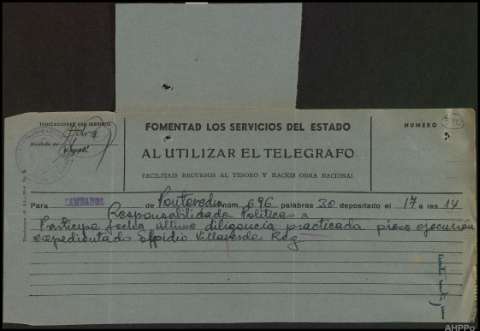 FOMENTAD LOS SERVICIOS DEL ESTADO
AL UTILIZAR EL TELEGRAFO
FACILITAIS RECURSOS AL TESORO Y HACEIS OBRA NACIONAL
INDICACIONES DEL SERVICIO
NUMERO
Para CAMBADOS de Pontevedra núm 696 palabras 30 depositado el 17 a las 14
Responsabilidades Politicas a
Participe fecha ultima diligencia practicada pieza ejecucion
expedientado Villaverde Rey
AHPPo